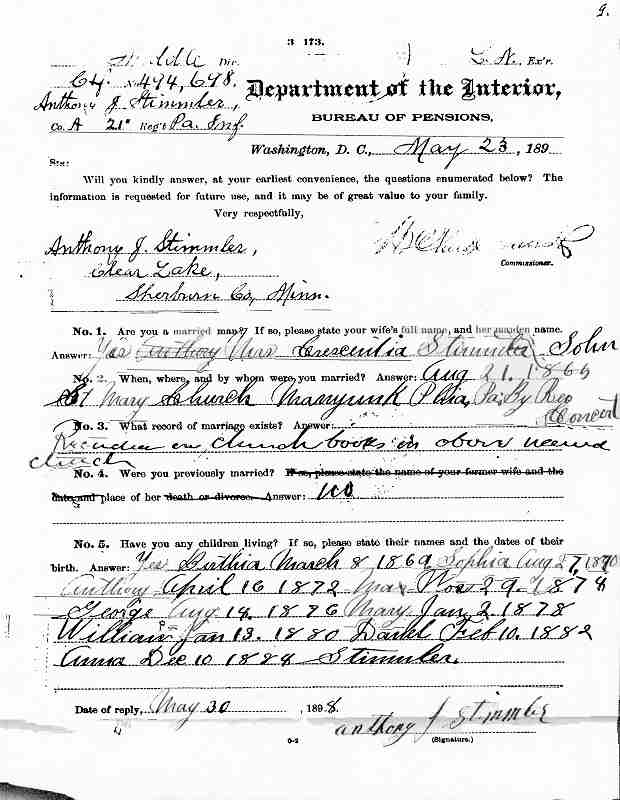 9.
3 173.
Div. Ex'r.
Ctf. No 494,698.
Anthony J. Stimmler,
Department of the Interior,
Co. A 21" Reg't Pa. Inf.
BUREAU OF PENSIONS,
Washington, D. C., May 23, 189
SIR:
Will you kindly answer, at your earliest convenience, the questions enumerated below? The
information is requested for future use, and it may be of great value to your family.
Very respectfully,
Anthony J. Stimmler,
Clear Lake,
Commissioner.
Sherburn Co, Minn.
No. 1. Are you a married man? If so, please state your wife's full name, and her maiden name.
Answer: Yes Anthony Mrs Crescentia Stimmler John
No. 2. When, where, and by whom were you married? Answer: Aug 21. 1866
St Mary Church Manyunk Phia, Pa. By Rev
No. 3. What record of marriage exists? Answer:
on church books in above named
church
No. 4. Were you previously married? If so, please state the name of your former wife and the
date and place of her death or divorce. Answer: no
No. 5. Have you any children living? If so, please state their names and the dates of their
birth. Answer: Yes March 8 1869 Sophia Aug 27, 1870
Anthony April 16 1872 Nov 29. 1874
George Aug 14. 1876 Mary Jan 2. 1878
William Jan 13. 1880 Feb 10. 1882
Anna Dec 10 1884 Stimmler.
Date of reply, May 30, 1898.
Anthony J Stimmler
(Signature.)
6-2